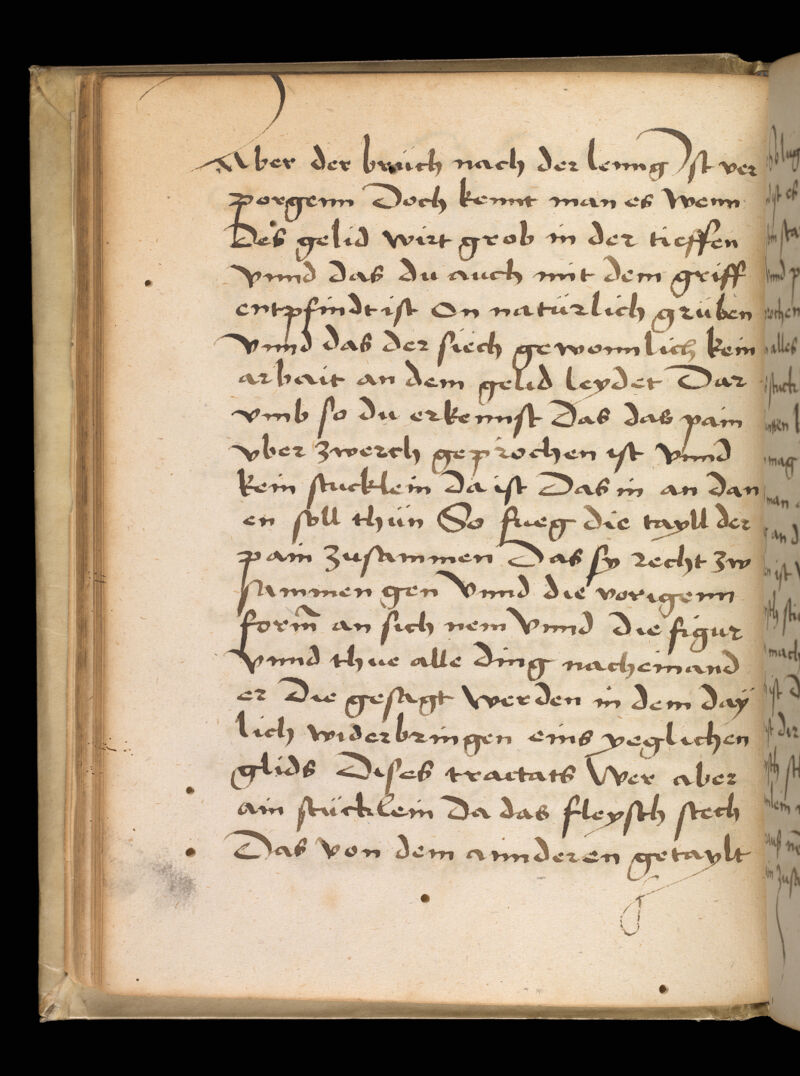 Aber der brüch nach der lenng Ist ver
porgenn Doch kennt man es Wenn
Des gelid wirt grob in der tieffen
vnnd das du auch mit dem griff
entpfindt ist On natürlich grüben
vnnd das der siech gewonnlich kein
arbait an dem gelid leydet Dar
vmb so du erkennst Das das pain
vber zwerch geprochen ist Vnnd
kein stucklein da ist Das in an dan
en soll thün So fueg die tayll der
pain zusammen Das sy recht zw
sammen gen Vnnd die vorigenn
form̄ an sich nem Vnnd die figur
vnnd thue alle ding nacheinand
er Die gesagt werden in dem day
lich widerbringen eins yeglichen
glids Dises tractats Wer aber
ain stücklein Da das fleysch stech
Das von dem annderen getaylt